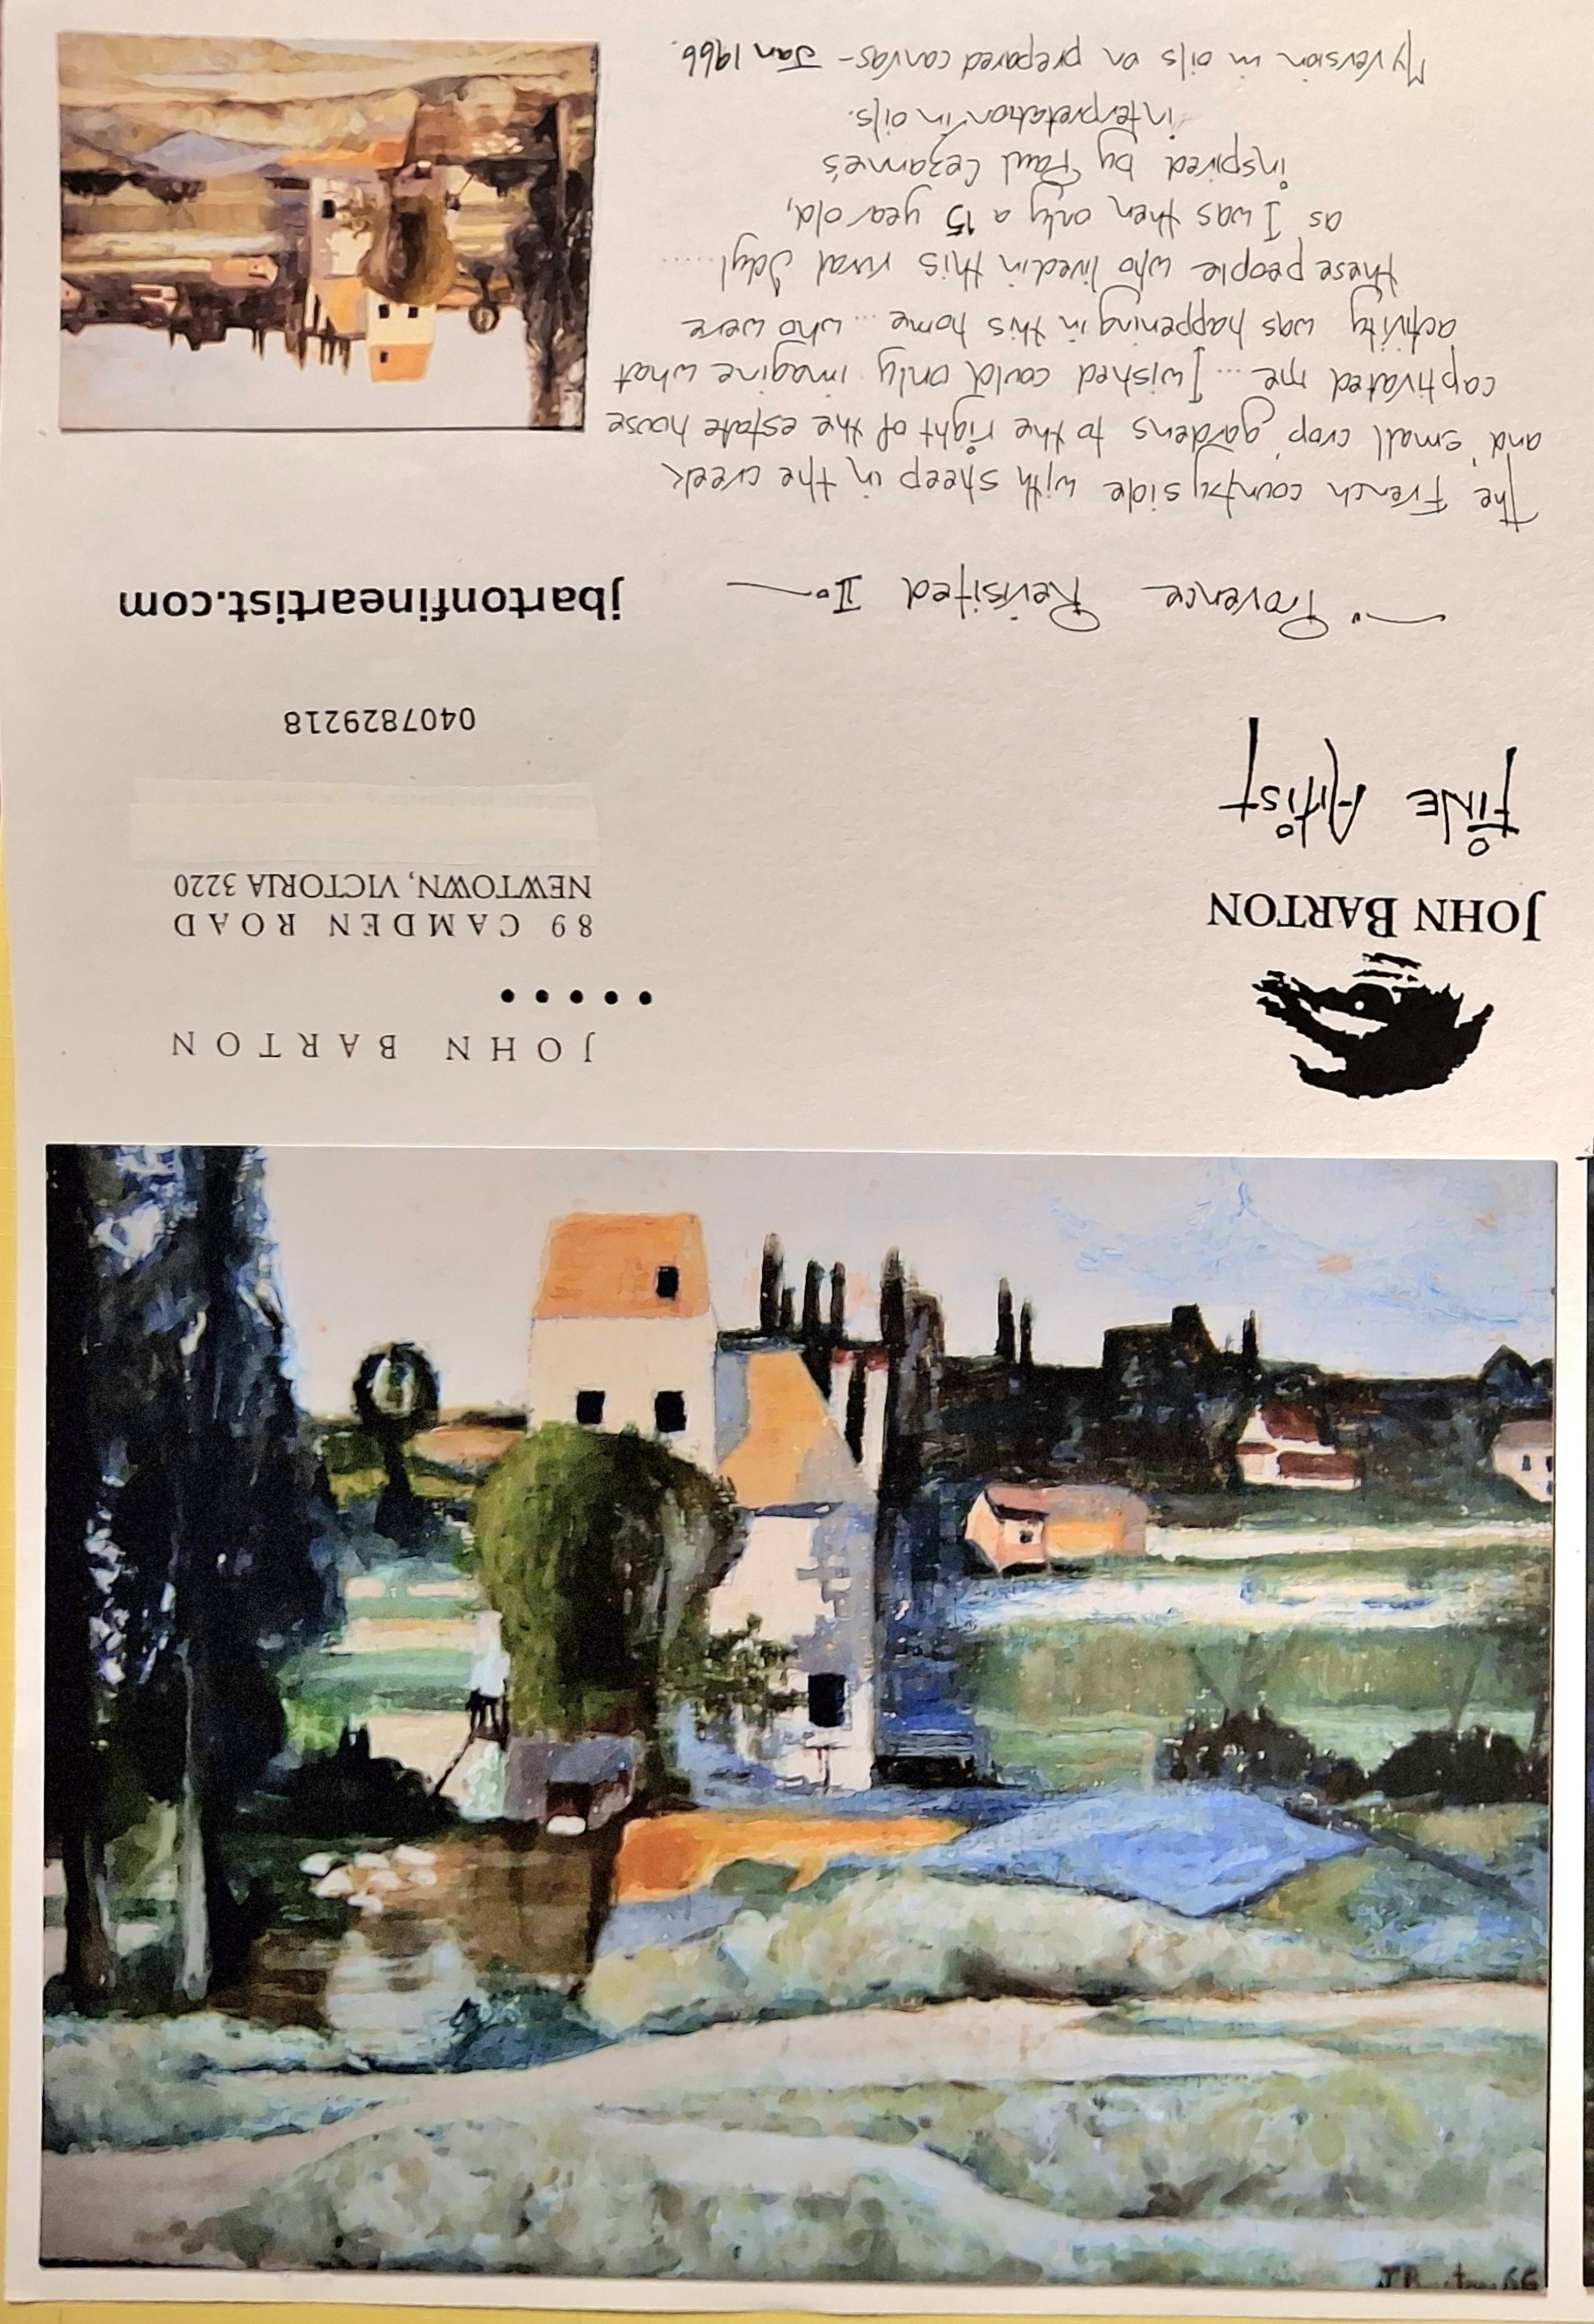 JOHN BARTON
FINE Artist
JOHN BARTON
89 CAMDEN ROAD
NEWTOWN, VICTORIA 3220
0407829218
jbartonfineartist.com
Provence Revisited II
The French countryside with sheep in the creek
and 'small crop' gardens to the right of the estate house
captivated me ... I wished could only imagine what
activity was happening in this home ... who were
these people who lived in this rural Idyl ......
as I was then only a 15 year old,
inspired by Paul Cezanne's
interpretation in oils.
My version in oils on prepared canvas - Jan 1966.
J Barton 66